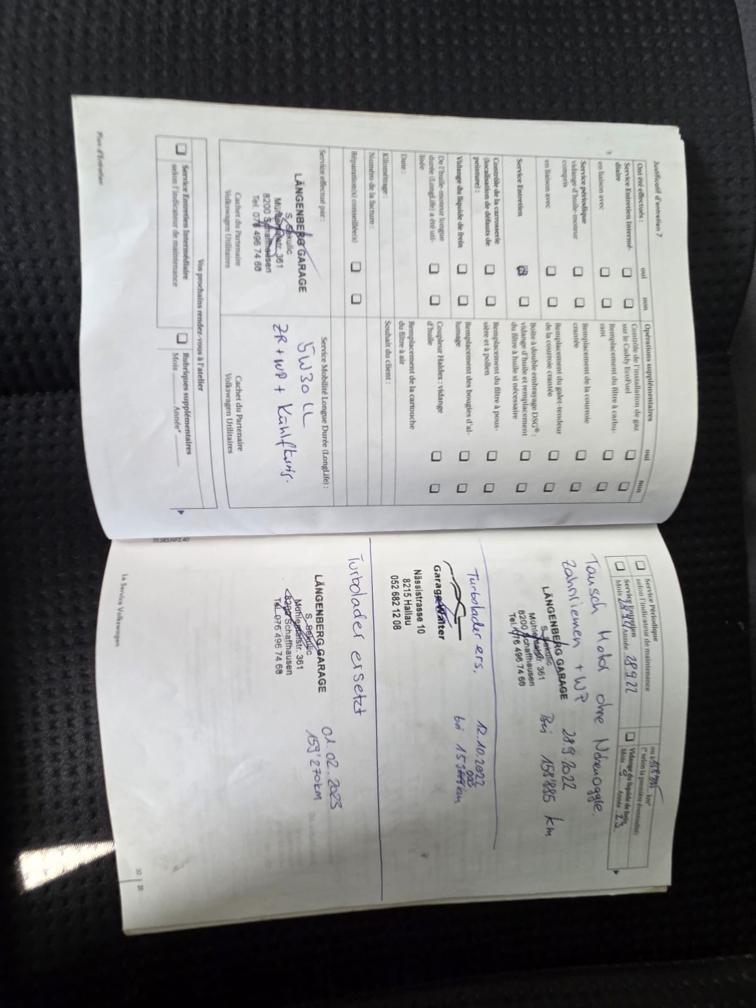 Justificatif d'entretien 7
Ont été effectués :
oui
non
Service Entretien Intermé-
diaire
en liaison avec
Service périodique
vidange d'huile moteur
compris
en liaison avec
Service Entretien
Contrôle de la carrosserie
(localisation de défauts de
peinture) :
Vidange du liquide de frein
De l'huile moteur longue
durée (LongLife) a été uti-
lisée
Date :
Kilométrage :
Numéro de la facture :
Réparation(s) conseillée(s)
Opérations supplémentaires
oui
non
Contrôle de l'installation de gaz
sur le Caddy EcoFuel
Remplacement du filtre à carbu-
rant
Remplacement de la courroie
crantée
Remplacement du galet-tendeur
de la courroie crantée
Boîte à double embrayage DSG® :
vidange d'huile et remplacement
du filtre à huile si nécessaire
Remplacement du filtre à pous-
sière et à pollen
Remplacement des bougies d'al-
lumage
Coupleur Haldex : vidange
d'huile
Remplacement de la cartouche
du filtre à air
Souhait du client :
Service effectué par :
LÄNGENBERG GARAGE
Mühlenstr. 361
8200 Schaffhausen
Tel. 076 496 74 68
Cachet du Partenaire
Volkswagen Utilitaires
Service Mobilité Longue Durée (LongLife) :
5W30 LL
ZR + WP +
Cachet du Partenaire
Volkswagen Utilitaires
Vos prochains rendez-vous à l'atelier
Service Entretien Intermédiaire
selon l'indicateur de maintenance
Rubriques supplémentaires
Mois Année*
Plan d'Entretien
Service Périodique
selon l'indicateur de maintenance
Service Entretien
Mois Année 28 9 22
Vidange du liquide de frein
Mois Année 23
Tausch Motor ohne
Zahnriemen + WP
28.9.2022
Bei 158'885 km
LÄNGENBERG GARAGE
Mühlenstr. 361
8200 Schaffhausen
Tel. 076 496 74 68
Turbolader ers. 12.10.2022
bei km
Garage Walter
Nässistrasse 10
8215 Hallau
052 682 12 08
Turbolader ersetzt
01.02.2023
159'270km
LÄNGENBERG GARAGE
Mühlenstr. 361
8200 Schaffhausen
Tel. 076 496 74 68
Le Service Volkswagen